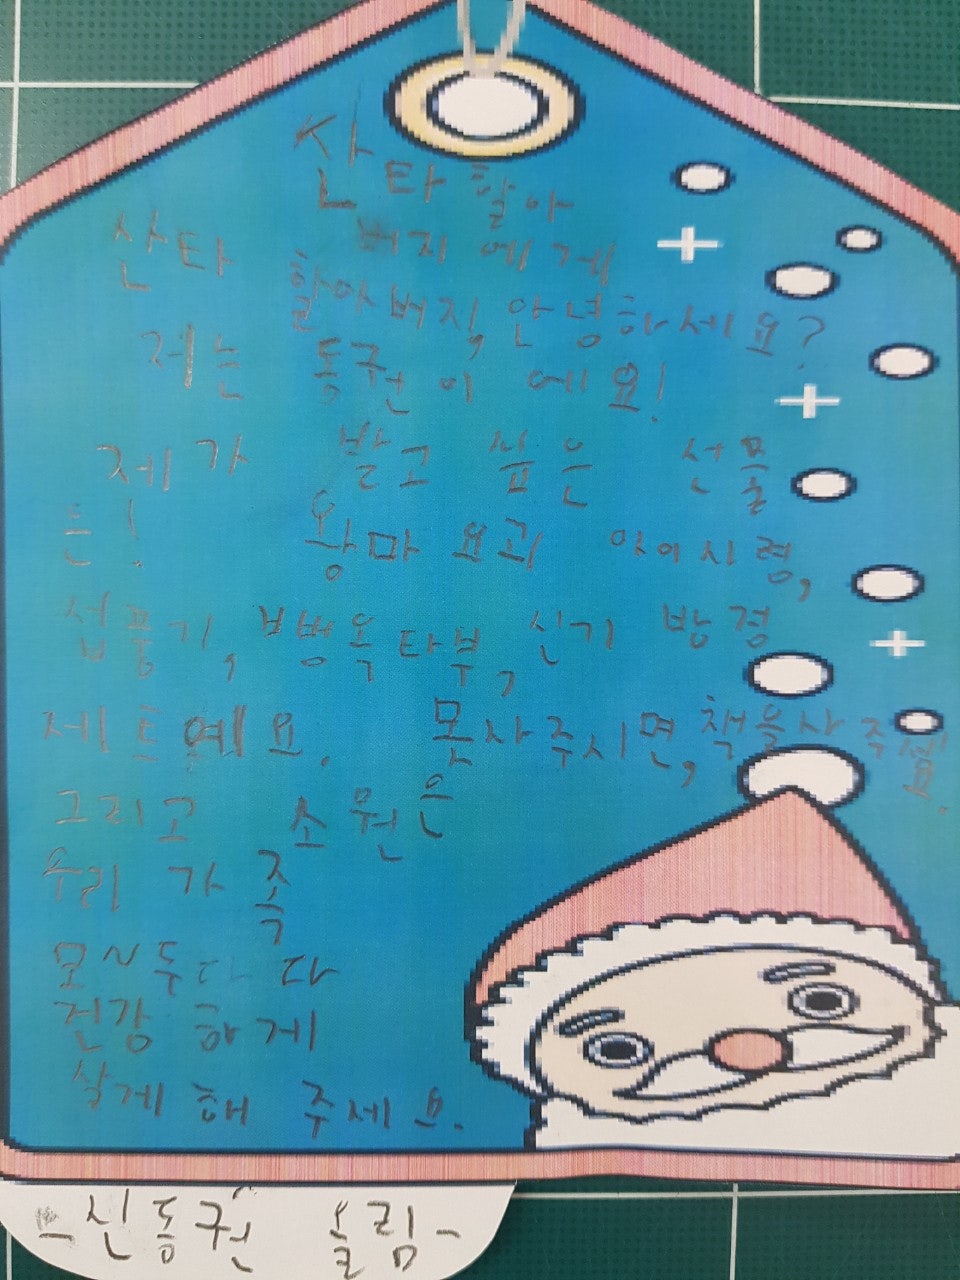 산타할아
버지에게
산타 할아버지, 안녕하세요?
저는 동권이에요!
제가 받고 싶은 선물
은! 왕마요괴 아이시령,
섭풍기, 빼뱅옥타부, 신기 방정
제트예요. 못사주시면, 책을사주세요.
그리고 소원은
우리 가족
모~두다 다
건강하게
살게 해 주세요.
-신동권 올림-